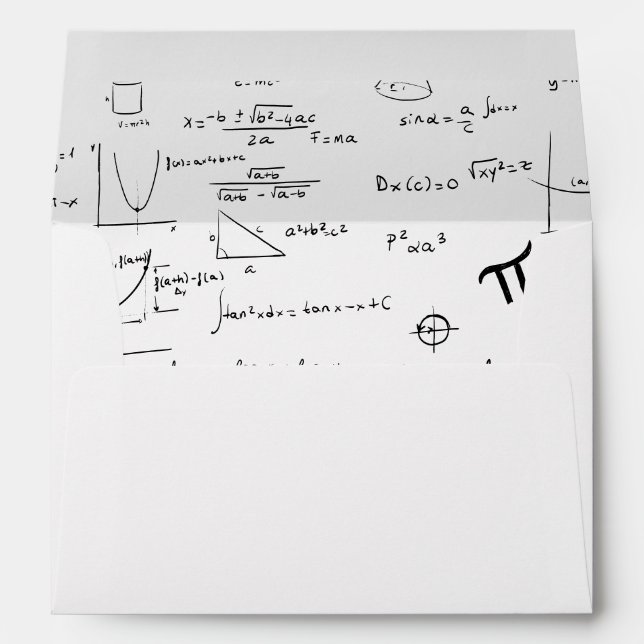 h
V=πr²h
x=-b ± √b²-4ac
2a
F=ma
sinα=a/c
∫dx=x
y
=1
f(x)=ax²+bx+c
√a+b
√a+b - √a-b
Dx(c)=0
√xy²=z
-x
x
b
c
a
a²+b²=c²
P²∝a³
f(a+h)
f(a+h)-f(a)
Δy
π
∫tan²xdx=tanx-x+C